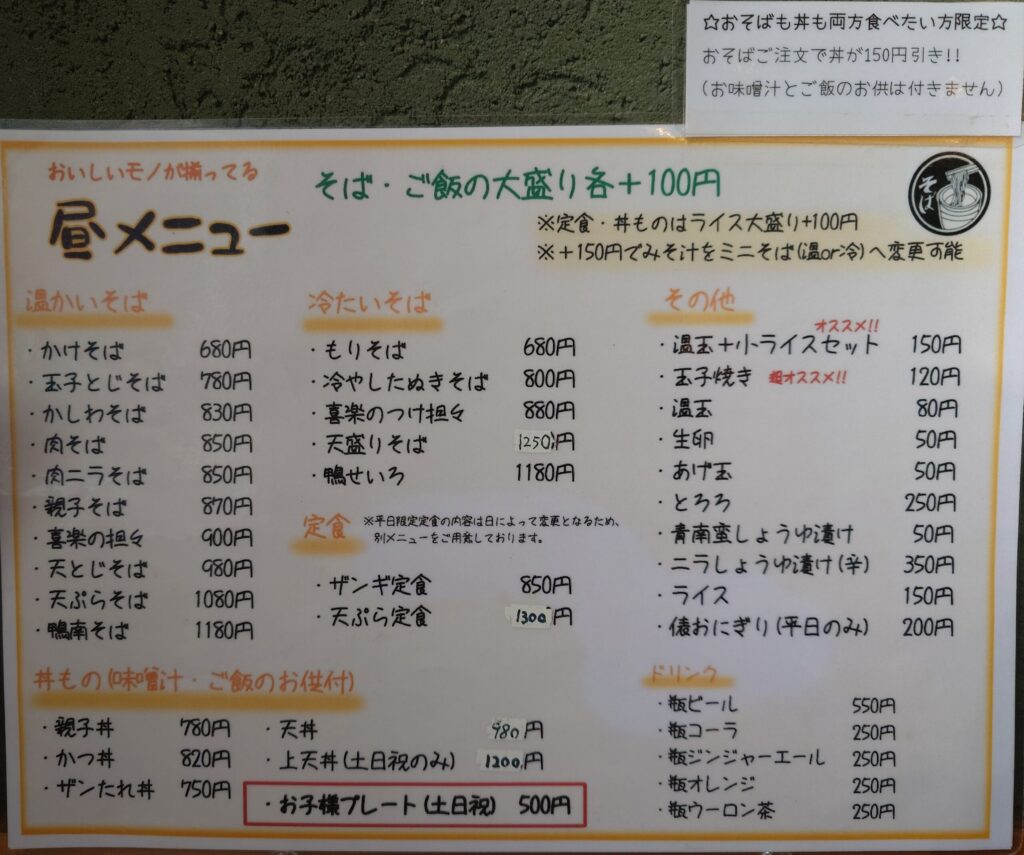 ☆おそばも丼も両方食べたい方限定☆
おそばご注文で丼が150円引き!!
(お味噌汁とご飯のお供は付きません)
おいしいモノが揃ってる
昼メニュー
そば・ご飯の大盛り各+100円
※定食・丼ものはライス大盛り+100円
※+150円でみそ汁をミニそば(温or冷)へ変更可能
そば
温かいそば
・かけそば 680円
・玉子とじそば 780円
・かしわそば 830円
・肉そば 850円
・肉ニラそば 850円
・親子そば 870円
・喜楽の担々 900円
・天とじそば 980円
・天ぷらそば 1080円
・鴨南そば 1180円
冷たいそば
・もりそば 680円
・冷やしたぬきそば 800円
・喜楽のつけ担々 880円
・天盛りそば 1250円
・鴨せいろ 1180円
定食
※平日限定定食の内容は日によって変更となるため、
別メニューをご用意しております。
・ザンギ定食 850円
・天ぷら定食 1300円
その他
オススメ!!
・温玉+小ライスセット 150円
・玉子焼き 超オススメ!! 120円
・温玉 80円
・生卵 50円
・あげ玉 50円
・とろろ 250円
・青南蛮しょうゆ漬け 50円
・ニラしょうゆ漬け(辛) 350円
・ライス 150円
・俵おにぎり(平日のみ) 200円
丼もの(味噌汁・ご飯のお供付)
・親子丼 780円
・かつ丼 820円
・ザンたれ丼 750円
・天丼 980円
・上天丼(土日祝のみ) 1200円
・お子様プレート(土日祝) 500円
ドリンク
・瓶ビール 550円
・瓶コーラ 250円
・瓶ジンジャーエール 250円
・瓶オレンジ 250円
・瓶ウーロン茶 250円